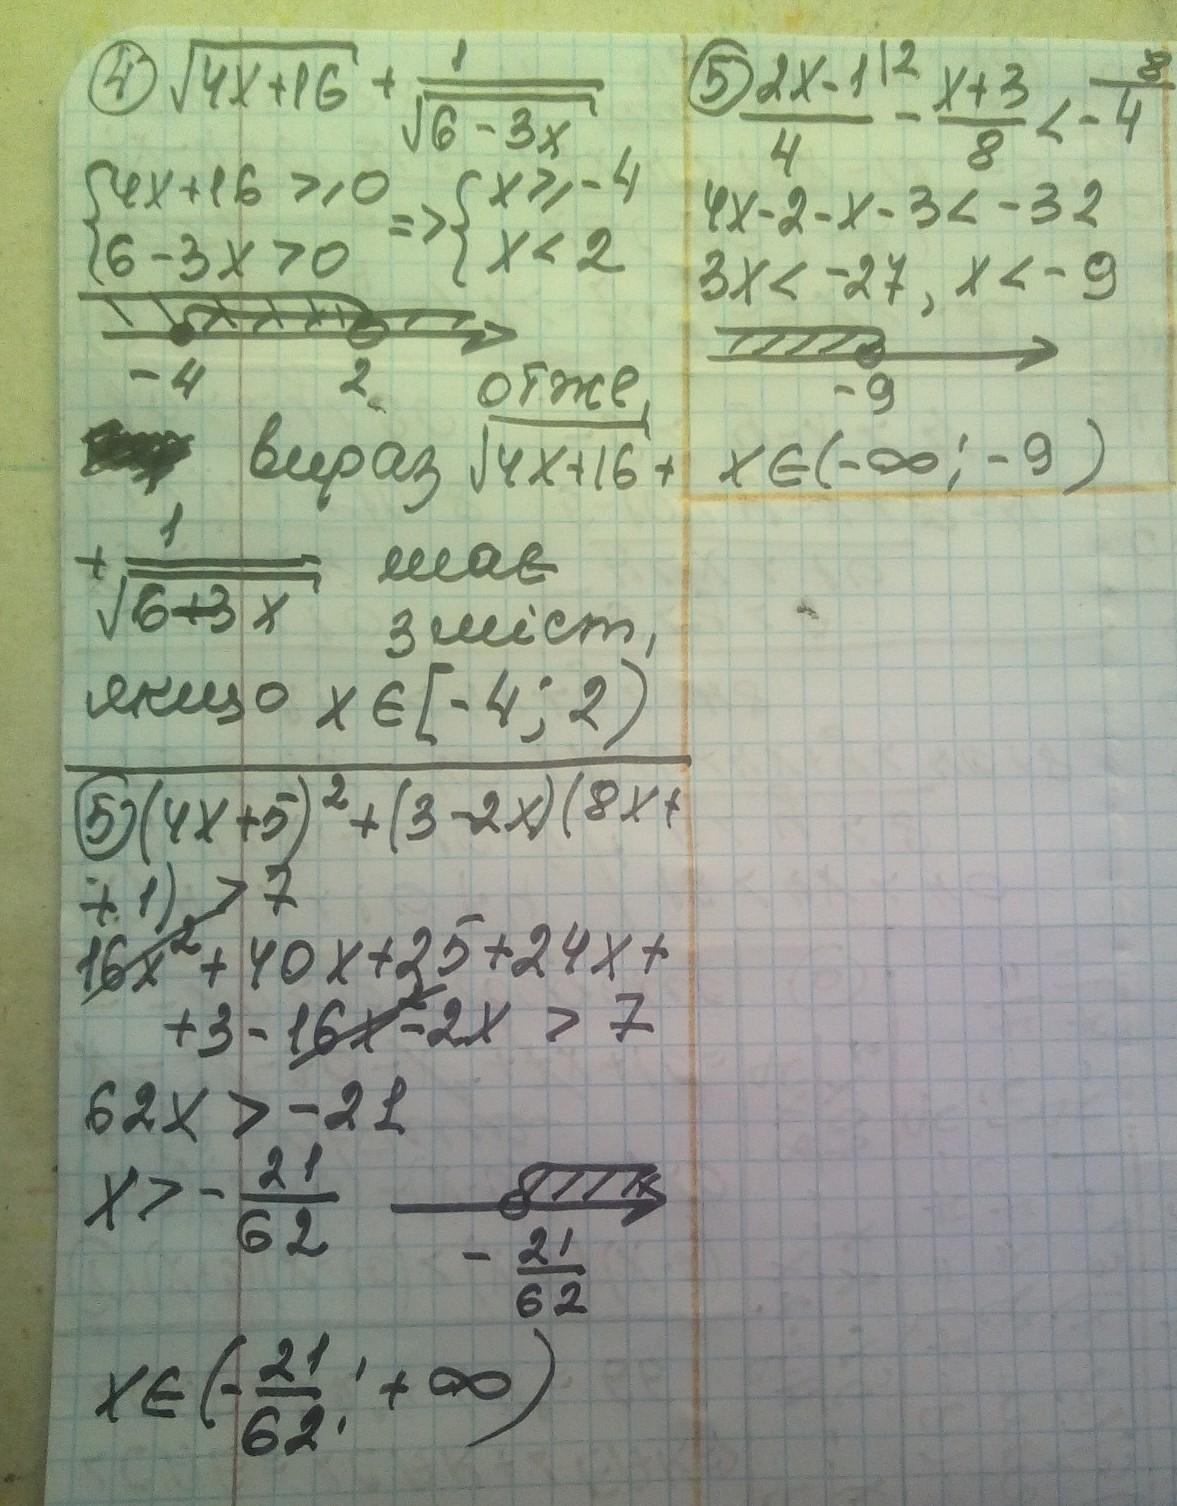 ④ √(4x+16) + 1/√(6-3x)
{4x+16 ⩾ 0 => {x ⩾ -4
{6-3x > 0 {x < 2
-4 2
отже,
вираз √(4x+16) +
+ 1/√(6+3x) має
зміст,
якщо x ∈ [-4; 2)
⑤ (4x+5)² + (3-2x)(8x+
+1) > 7
16x² + 40x + 25 + 24x +
+3 - 16x² - 2x > 7
62x > -21
x > -21/62
-21/62
x ∈ (-21/62; +∞)
⑤ (2x-1)/4 |2 - (x+3)/8 < -4 8
4x-2-x-3 < -32
3x < -27, x < -9
-9
x ∈ (-∞; -9)